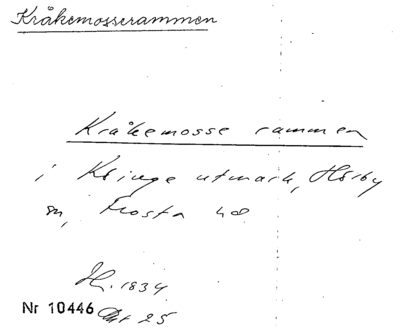 Kråkemosserammen
Kråkemosse rammen
i Klinge utmark, Hörby
sn, Frosta hd
H. 1834
Nr 10446 Akt 25